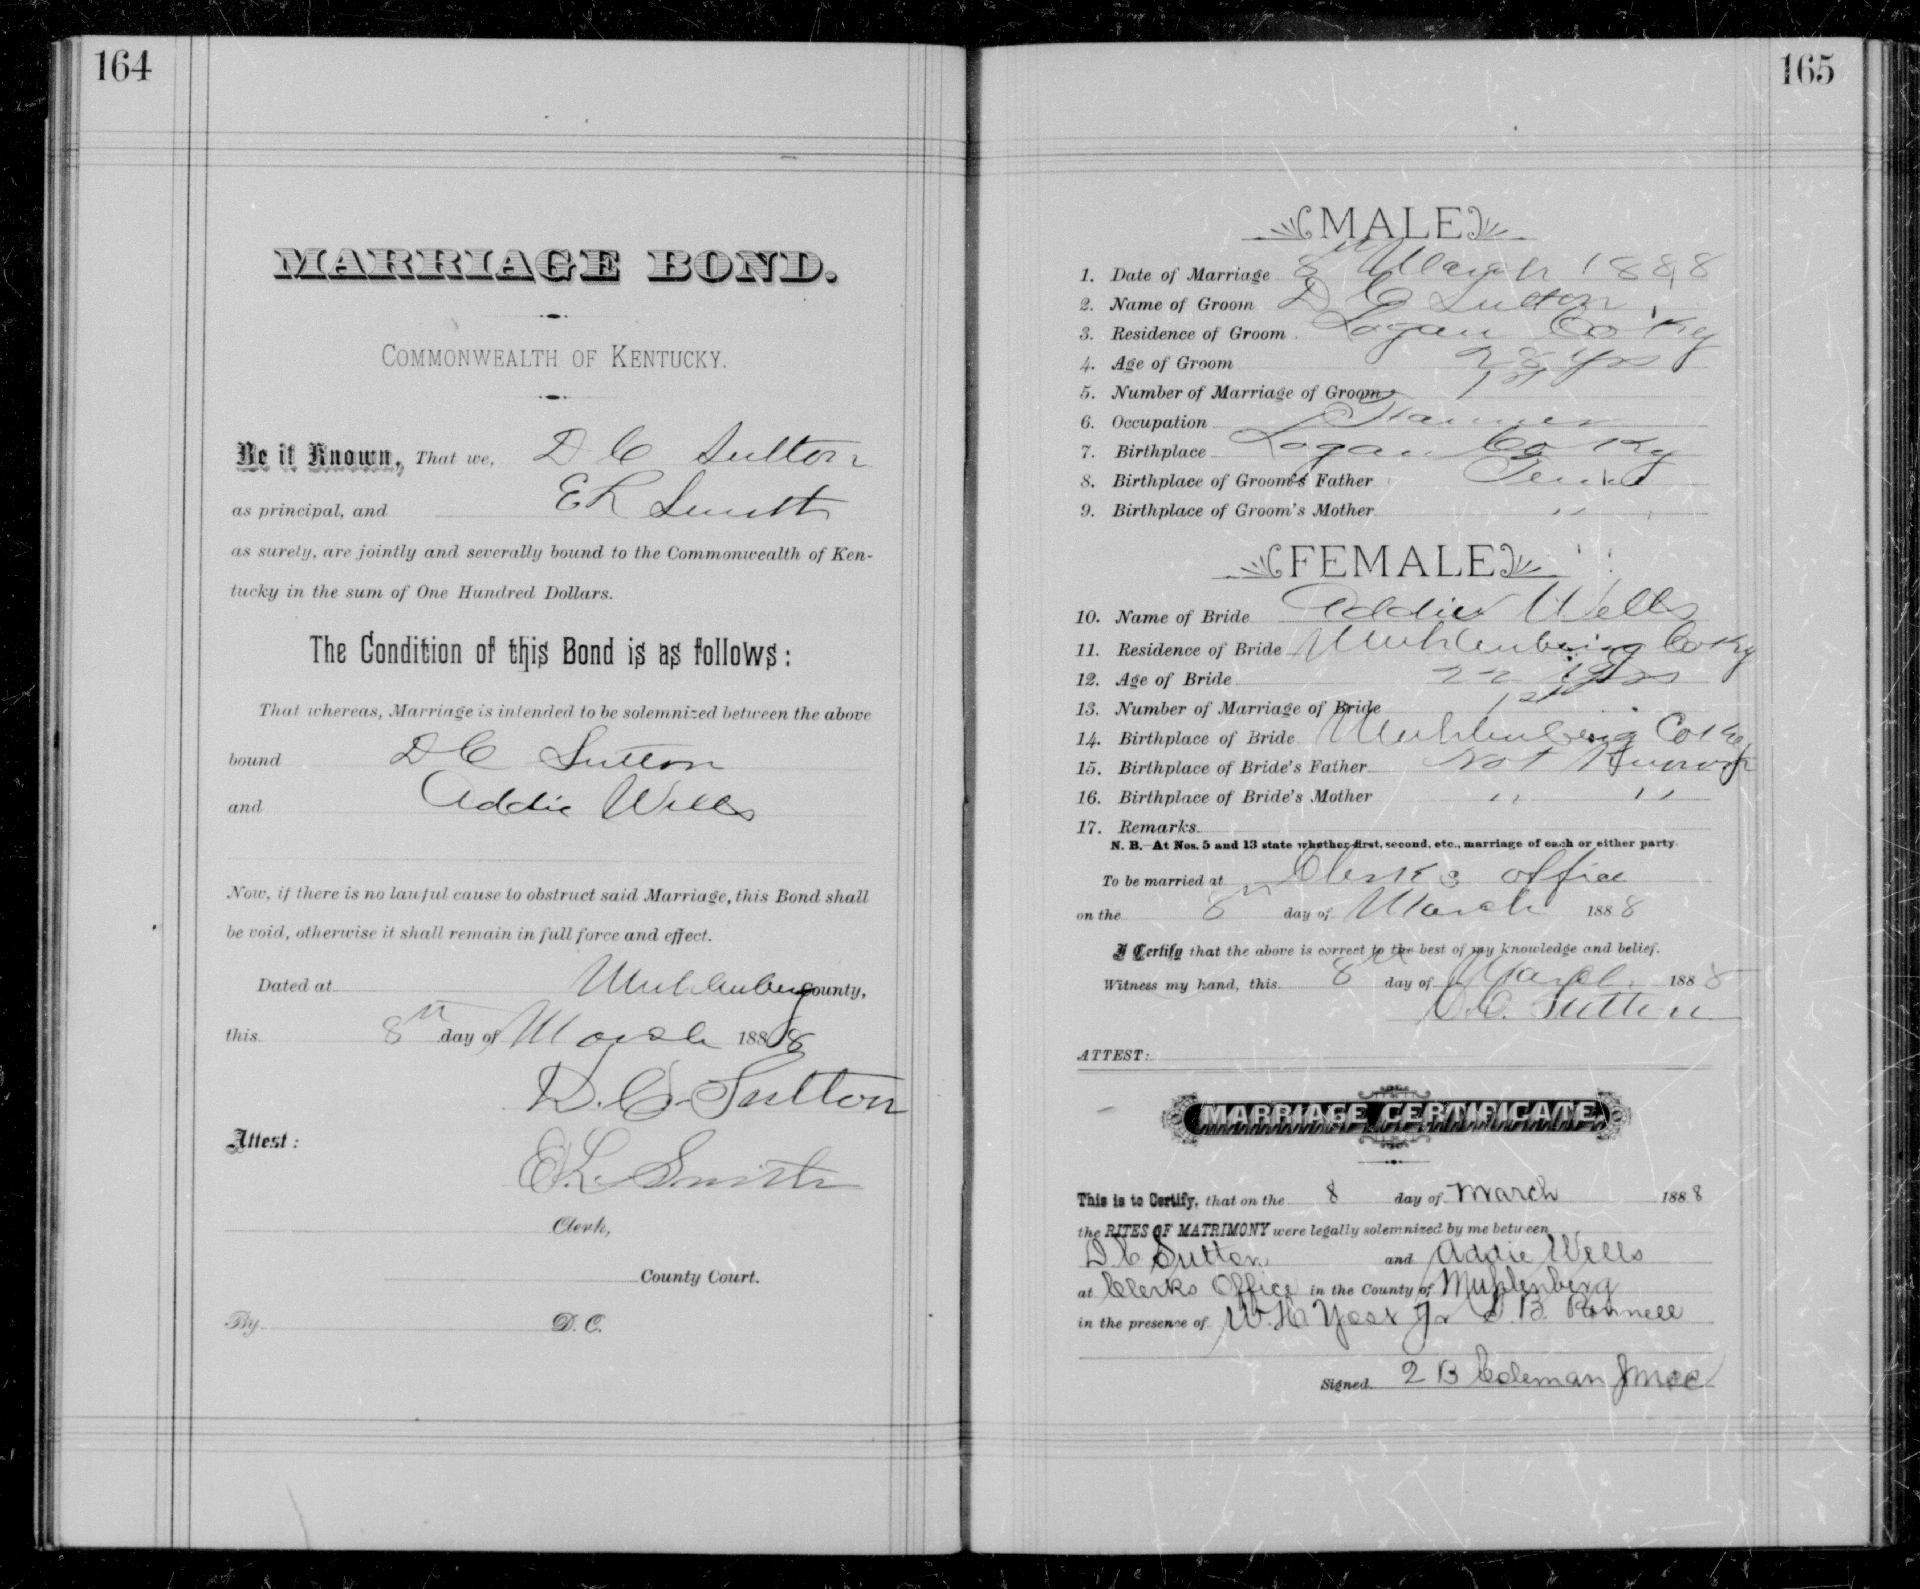 164
MARRIAGE BOND.
COMMONWEALTH OF KENTUCKY.
Be it Known, That we, D C Sutton
as principal, and E L Smith
as surety, are jointly and severally bound to the Commonwealth of Ken-
tucky in the sum of One Hundred Dollars.
The Condition of this Bond is as follows:
That whereas, Marriage is intended to be solemnized between the above
bound D C Sutton
and Addie Wells
Now, if there is no lawful cause to obstruct said Marriage, this Bond shall
be void, otherwise it shall remain in full force and effect.
Dated at Muhlenberg County,
this 8th day of March 1888
D. C. Sutton
Attest: E. L. Smith
Clerk,
County Court.
By D. C.
165
MALE
1. Date of Marriage 8th March 1888
2. Name of Groom D C Sutton
3. Residence of Groom Logan Co Ky
4. Age of Groom 28 yrs
5. Number of Marriage of Groom 1st
6. Occupation Farmer
7. Birthplace Logan Co Ky
8. Birthplace of Groom's Father Tenn
9. Birthplace of Groom's Mother " "
FEMALE
10. Name of Bride Addie Wells
11. Residence of Bride Muhlenberg Co Ky
12. Age of Bride 22 yrs
13. Number of Marriage of Bride 1st
14. Birthplace of Bride Muhlenberg Co Ky
15. Birthplace of Bride's Father Not Known
16. Birthplace of Bride's Mother " "
17. Remarks
N. B.—At Nos. 5 and 13 state whether first, second, etc., marriage of each or either party.
To be married at Clerks office
on the 8th day of March 1888
I Certify that the above is correct to the best of my knowledge and belief.
Witness my hand, this 8th day of March 1888
D. C. Sutton
ATTEST:
MARRIAGE CERTIFICATE.
This is to Certify, that on the 8 day of March 1888
the RITES OF MATRIMONY were legally solemnized by me between
D C Sutton and Addie Wells
at Clerks Office in the County of Muhlenberg
in the presence of W. H Yost Jr B.
Signed B Coleman